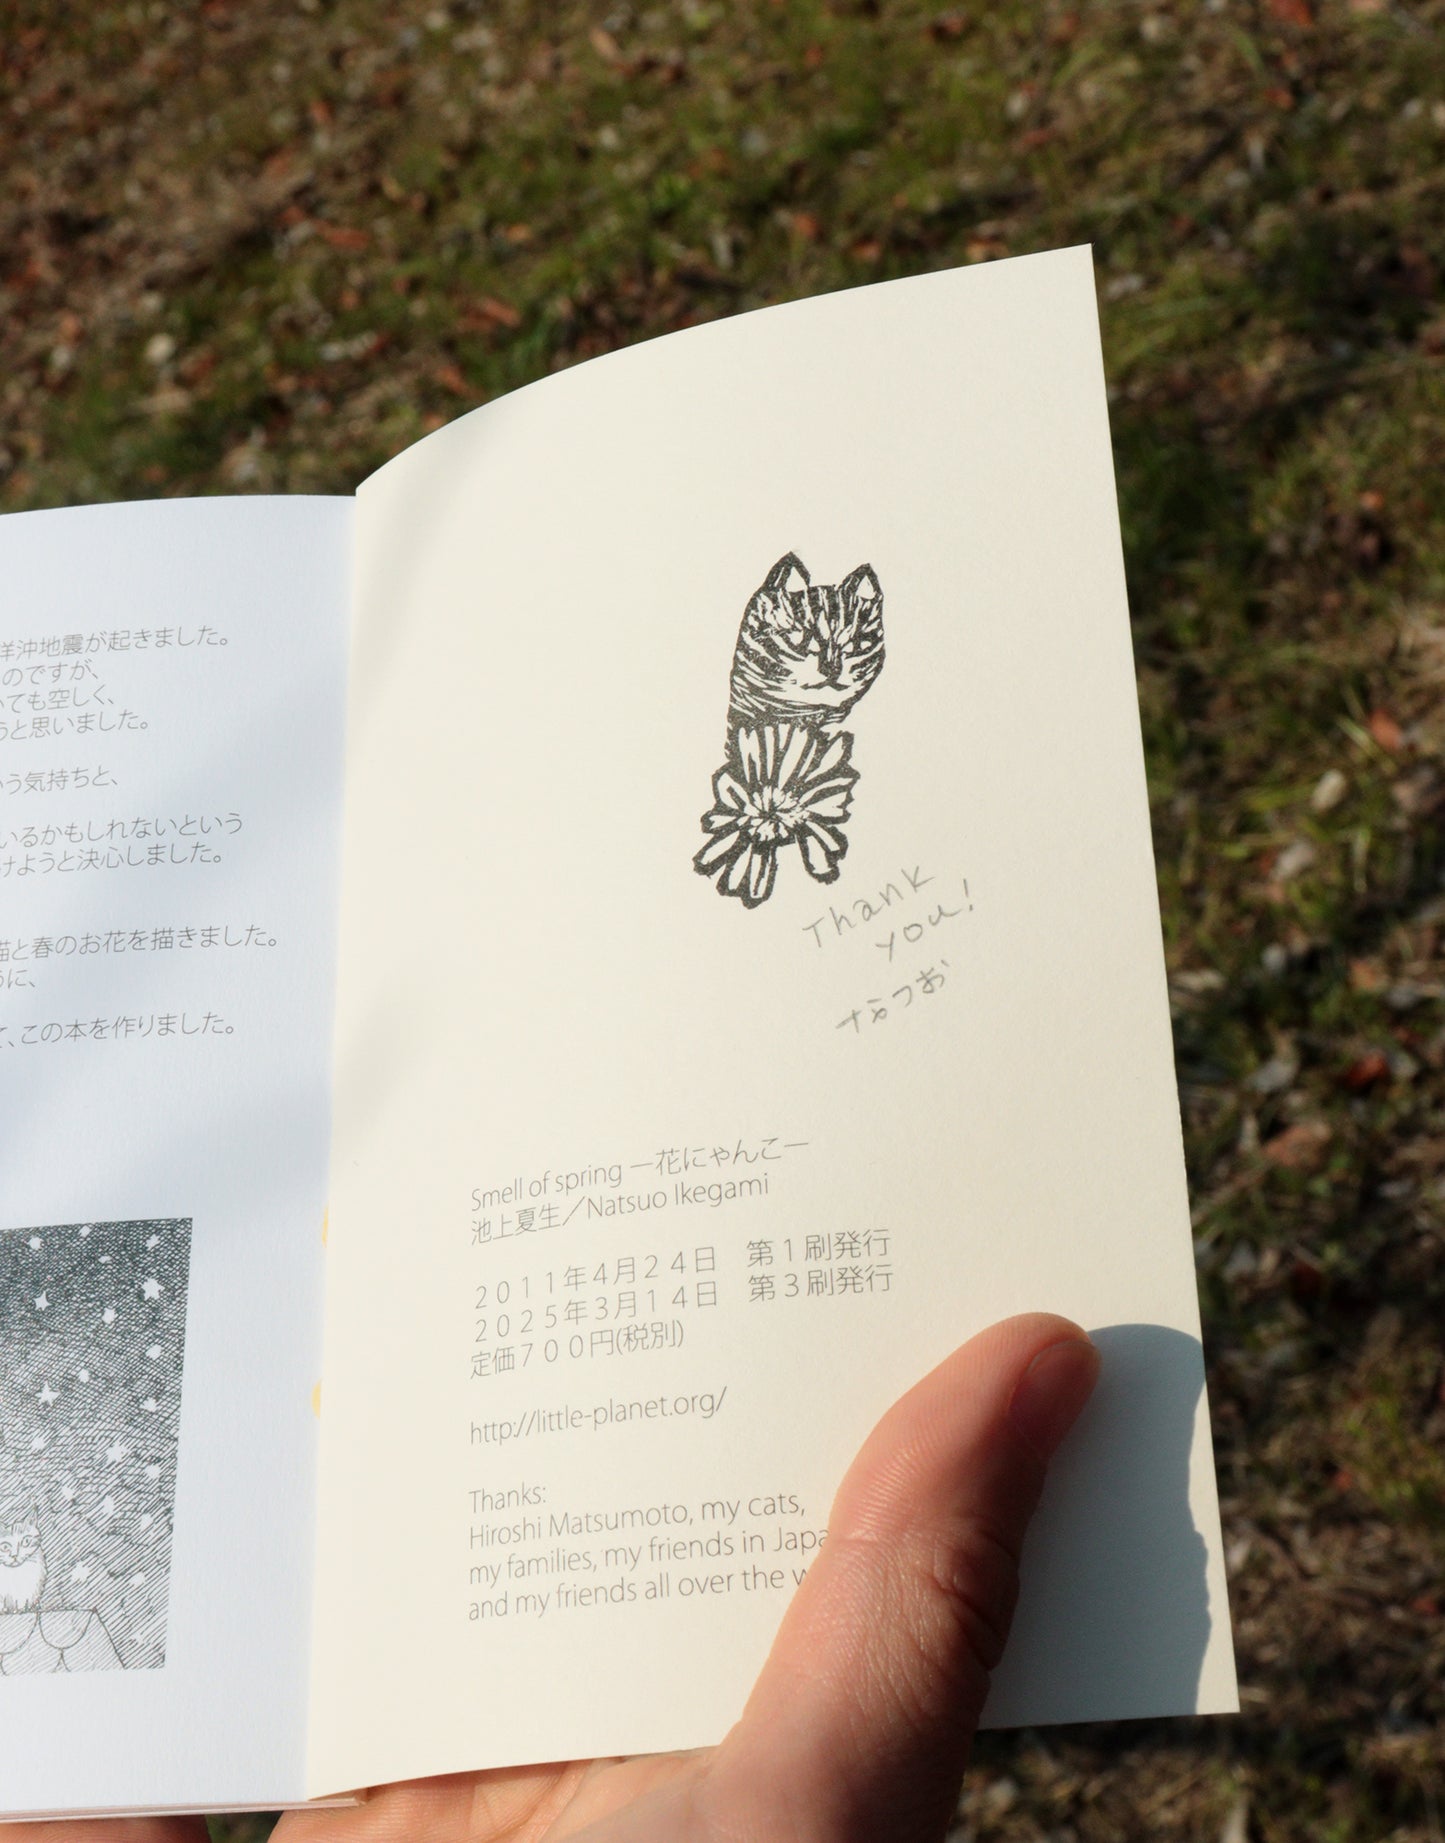 洋沖地震が起きました。
のですが、
いても空しく、
うと思いました。
いう気持ちと、
いるかもしれないという
けようと決心しました。
猫と春のお花を描きました。
うに、
て、この本を作りました。
Thank
you!
なつお
Smell of spring ー花にゃんこー
池上夏生／Natsuo Ikegami
２０１１年４月２４日　第１刷発行
２０２５年３月１４日　第３刷発行
定価７００円(税別)
http://little-planet.org/
Thanks:
Hiroshi Matsumoto, my cats,
my families, my friends in
and my friends all over the